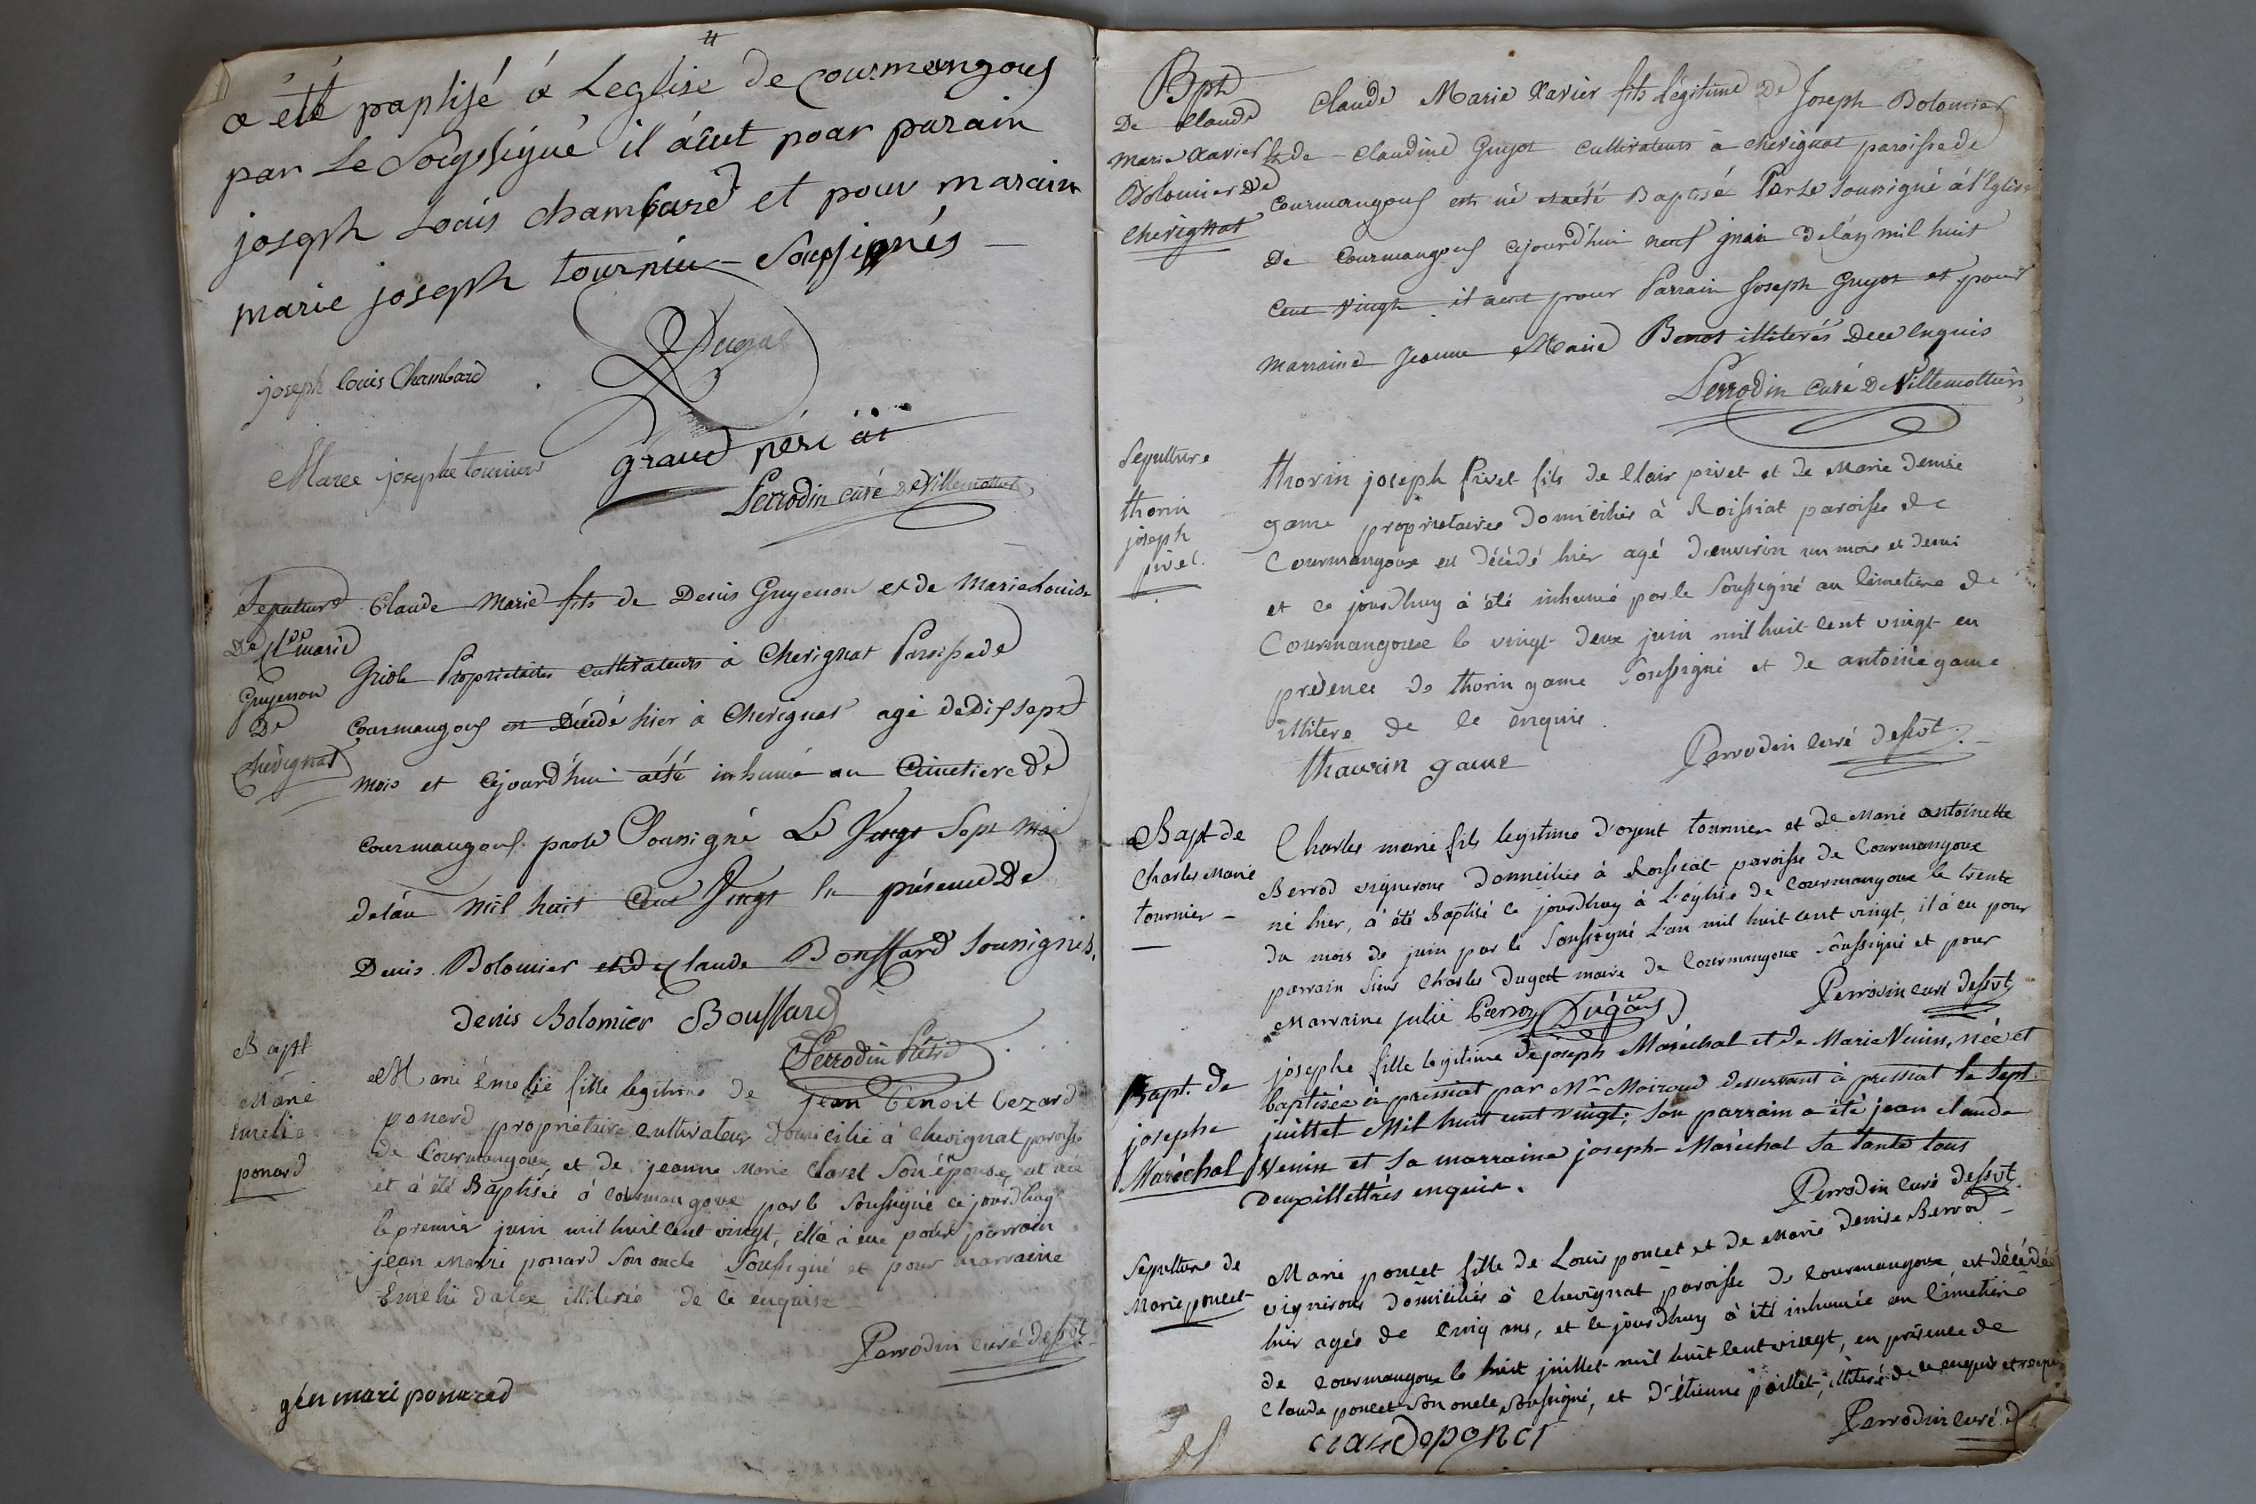 a été paptisé a Leglise de Courmangous
par Le Sougsigné il áeut poar parain
joseph Louis chambard et pour marain
marie joseph tournier Soupsignés
joseph louis Chambard
Maree josephe tournier
grand pére
Perrodin curé de Villemottier
Sepulture
De Cl. marie
Guyenon
De
Chevignat
Claude Marie fils de Denis Guyenon et de Marie Louise
Griole Propriétaires cultivateurs à Chevignat Paroisse de
Courmangous est Décédé hier à Chevignat agé de Dissept
mois et cejourd'hui aété inhumé au Cimetiere de
Courmangous parle Sousigné Le Vingt Sept mai
delán mil huit Cent Vingt En présence De
Denis Bolomier et de Claude Bouffard Sousignés.
Denis Bolomier Bouffard
Perrodin
Bapt
Marie
Emelie
ponard
Marie émelie fille legitime de jean Benoit Cezard
ponard propriétaire cultivateur Domicilié à Chevignat paroisse
de Courmangoux, et de jeanne Marie Claret Son épouse, est née
et à été Baptisée à Courmangoux par le Soussigné ce jourdhuy
le premier juin mil huit cent vingt, elle à eue pour parrain
jean Marie ponard Son oncle Soussigné et pour marraine
Emelie dalex illiterée de ce enquise
Perrodin curé desst
gen mari ponared
Bpt
De Claude
Marie Xavier
Bolomier De
Chevignat
Claude Marie Xavier fils Légitime De Joseph Bolomier
et de Claudine Guyot Cultivateurs à Chevignat paroisse de
Courmangous est né etaété Baptisé Par Le Sousigné á l'Eglise
De Courmangous cejourd'hui neuf juin delán mil huit
Cent Vingt il aeut pour Parrain Joseph Guyot et pour
Marraine Jeanne Marie Benot illiterés Dece Enquis
Perrodin Curé De Villemottier
Sepulture
thorin
joseph
pivet.
thorin joseph Pivet fils de Clair pivet et de Marie Denise
game proprietaires Domiciliés à Roissiat paroisse de
Courmangoux est décédé hier agé d'environ un mois et demi
et ce jourdhuy à été inhumé par le Soussigné au Cimetiere de
Courmangoux le vingt deux juin mil huit cent vingt en
présence de thorin game Soussigné et de antoine game
illitere de ce enquis.
Thaurin game
Perrodin curé desst.
Bapt de
Charles Marie
tournier
Charles marie fils legitime d'oyent tournier et de Marie antoinette
Berrod vignerons Domiciliés à Roissiat paroisse de Courmangoux
né hier, à été Baptisé ce jourdhuy à l'eglise de Courmangoux le trente
du mois de juin par le Soussigné l'an mil huit cent vingt, il à eu pour
parrain Sieur Charles dugad maire de Courmangoux Soussigné et pour
Marraine julie
Perrodin curé desst
Bapt. de
josephe
Maréchal
josephe fille legitime de joseph Maréchal et de Marie Venin, née et
baptisée à pressiat par Mr Moiroud desservant à pressiat le Sept
juillet Mil huit cent vingt; Son parrain a été jean claude
Venin et Sa marraine joseph Maréchal Sa tante tous
Deux illettrés enquis.
Perrodin curé desst.
Sepulture de
Marie poncet
Marie poncet fille de Louis poncet et de Marie Denise Berrod
vignerons Domiciliés à Chevignat paroisse de Courmangoux est décédée
hier agée de Cinq ans, et ce jourdhuy à été inhumée au Cimetière
de Courmangoux le huit juillet mil huit cent vingt, en présence de
Claude poncet Son oncle Soussigné, et d'étienne paillet, illiteré de ce enquis et requis
Perrodin curé d